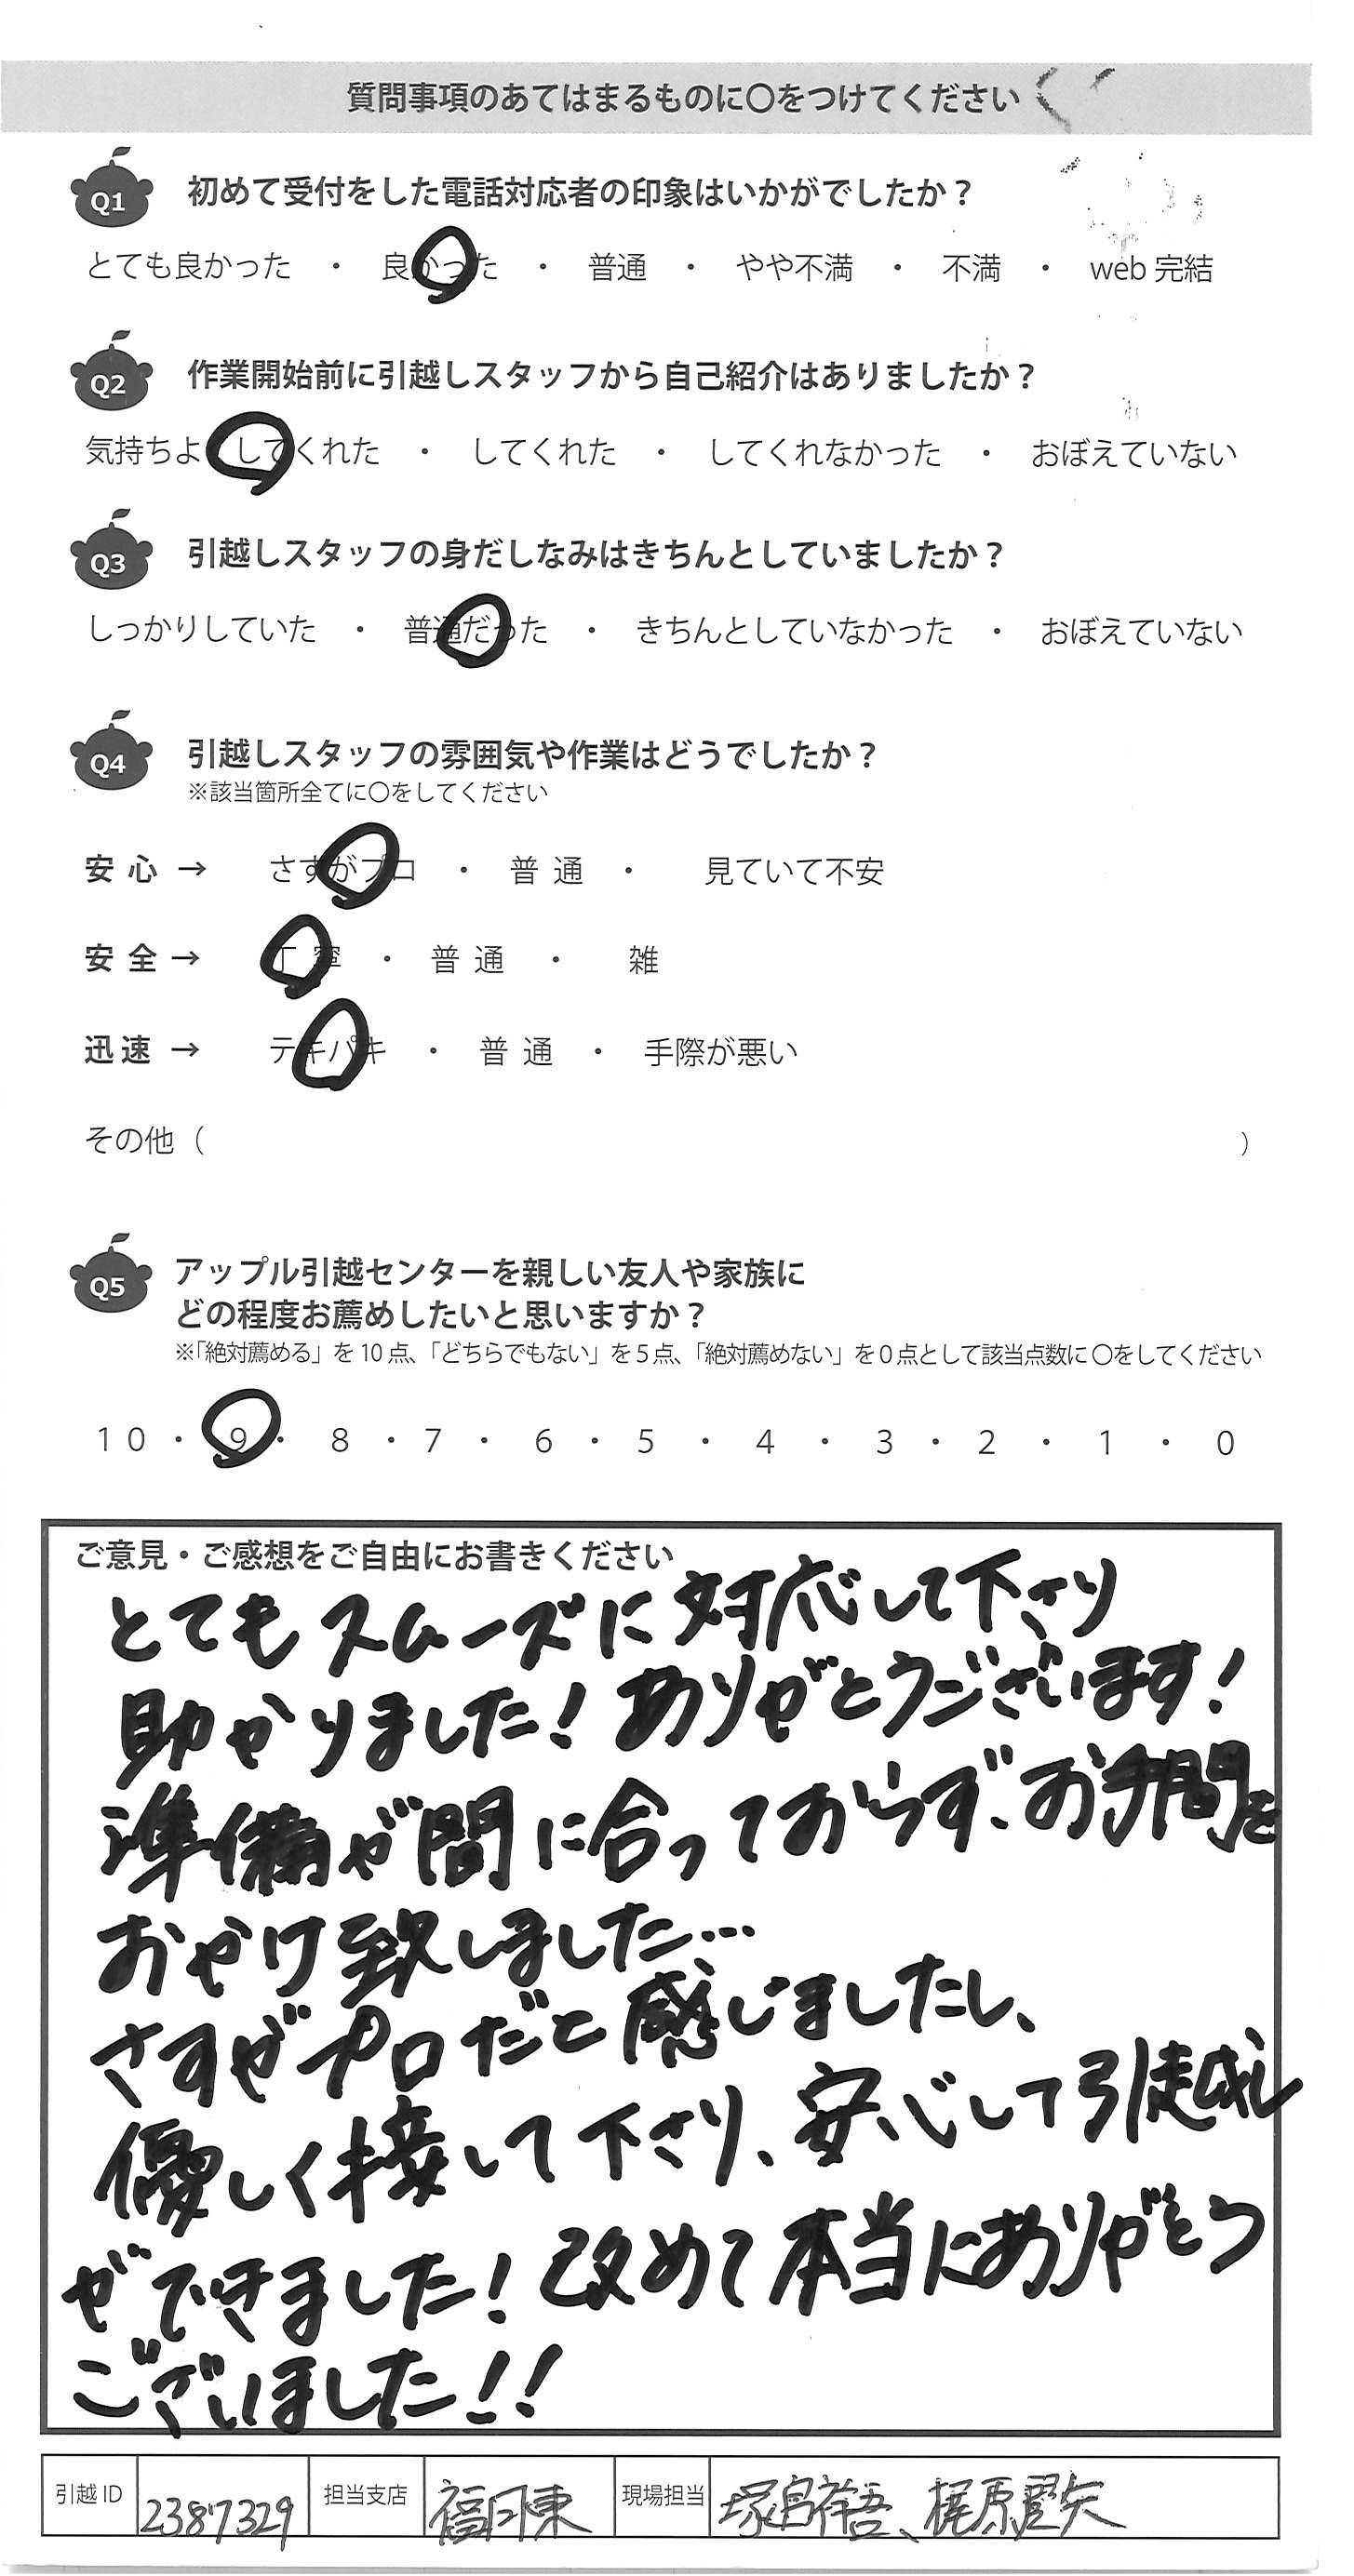 質問事項のあてはまるものに〇をつけてください
Q1 初めて受付をした電話対応者の印象はいかがでしたか？
とても良かった ・ 良かった ・ 普通 ・ やや不満 ・ 不満 ・ web 完結
Q2 作業開始前に引越しスタッフから自己紹介はありましたか？
気持ちよくしてくれた ・ してくれた ・ してくれなかった ・ おぼえていない
Q3 引越しスタッフの身だしなみはきちんとしていましたか？
しっかりしていた ・ 普通だった ・ きちんとしていなかった ・ おぼえていない
Q4 引越しスタッフの雰囲気や作業はどうでしたか？
※該当箇所全てに〇をしてください
安心 → さすがプロ ・ 普通 ・ 見ていて不安
安全 → 丁寧 ・ 普通 ・ 雑
迅速 → テキパキ ・ 普通 ・ 手際が悪い
その他（ ）
Q5 アップル引越センターを親しい友人や家族に
どの程度お薦めしたいと思いますか？
※「絶対薦める」を 10 点、「どちらでもない」を 5 点、「絶対薦めない」を 0 点として該当点数に〇をしてください
10 ・ 9 ・ 8 ・ 7 ・ 6 ・ 5 ・ 4 ・ 3 ・ 2 ・ 1 ・ 0
ご意見・ご感想をご自由にお書きください
とてもスムーズに対応して下さり
助かりました！ありがとうございます！
準備が間に合っておらず、お手間を
おかけ致しました…
さすがプロだと感じましたし、
優しく接して下さり、安心して引越し
ができました！改めて本当にありがとう
ございました！！
引越 ID 2387329 担当支店 福岡東 現場担当 塚冨祥吾、梶原